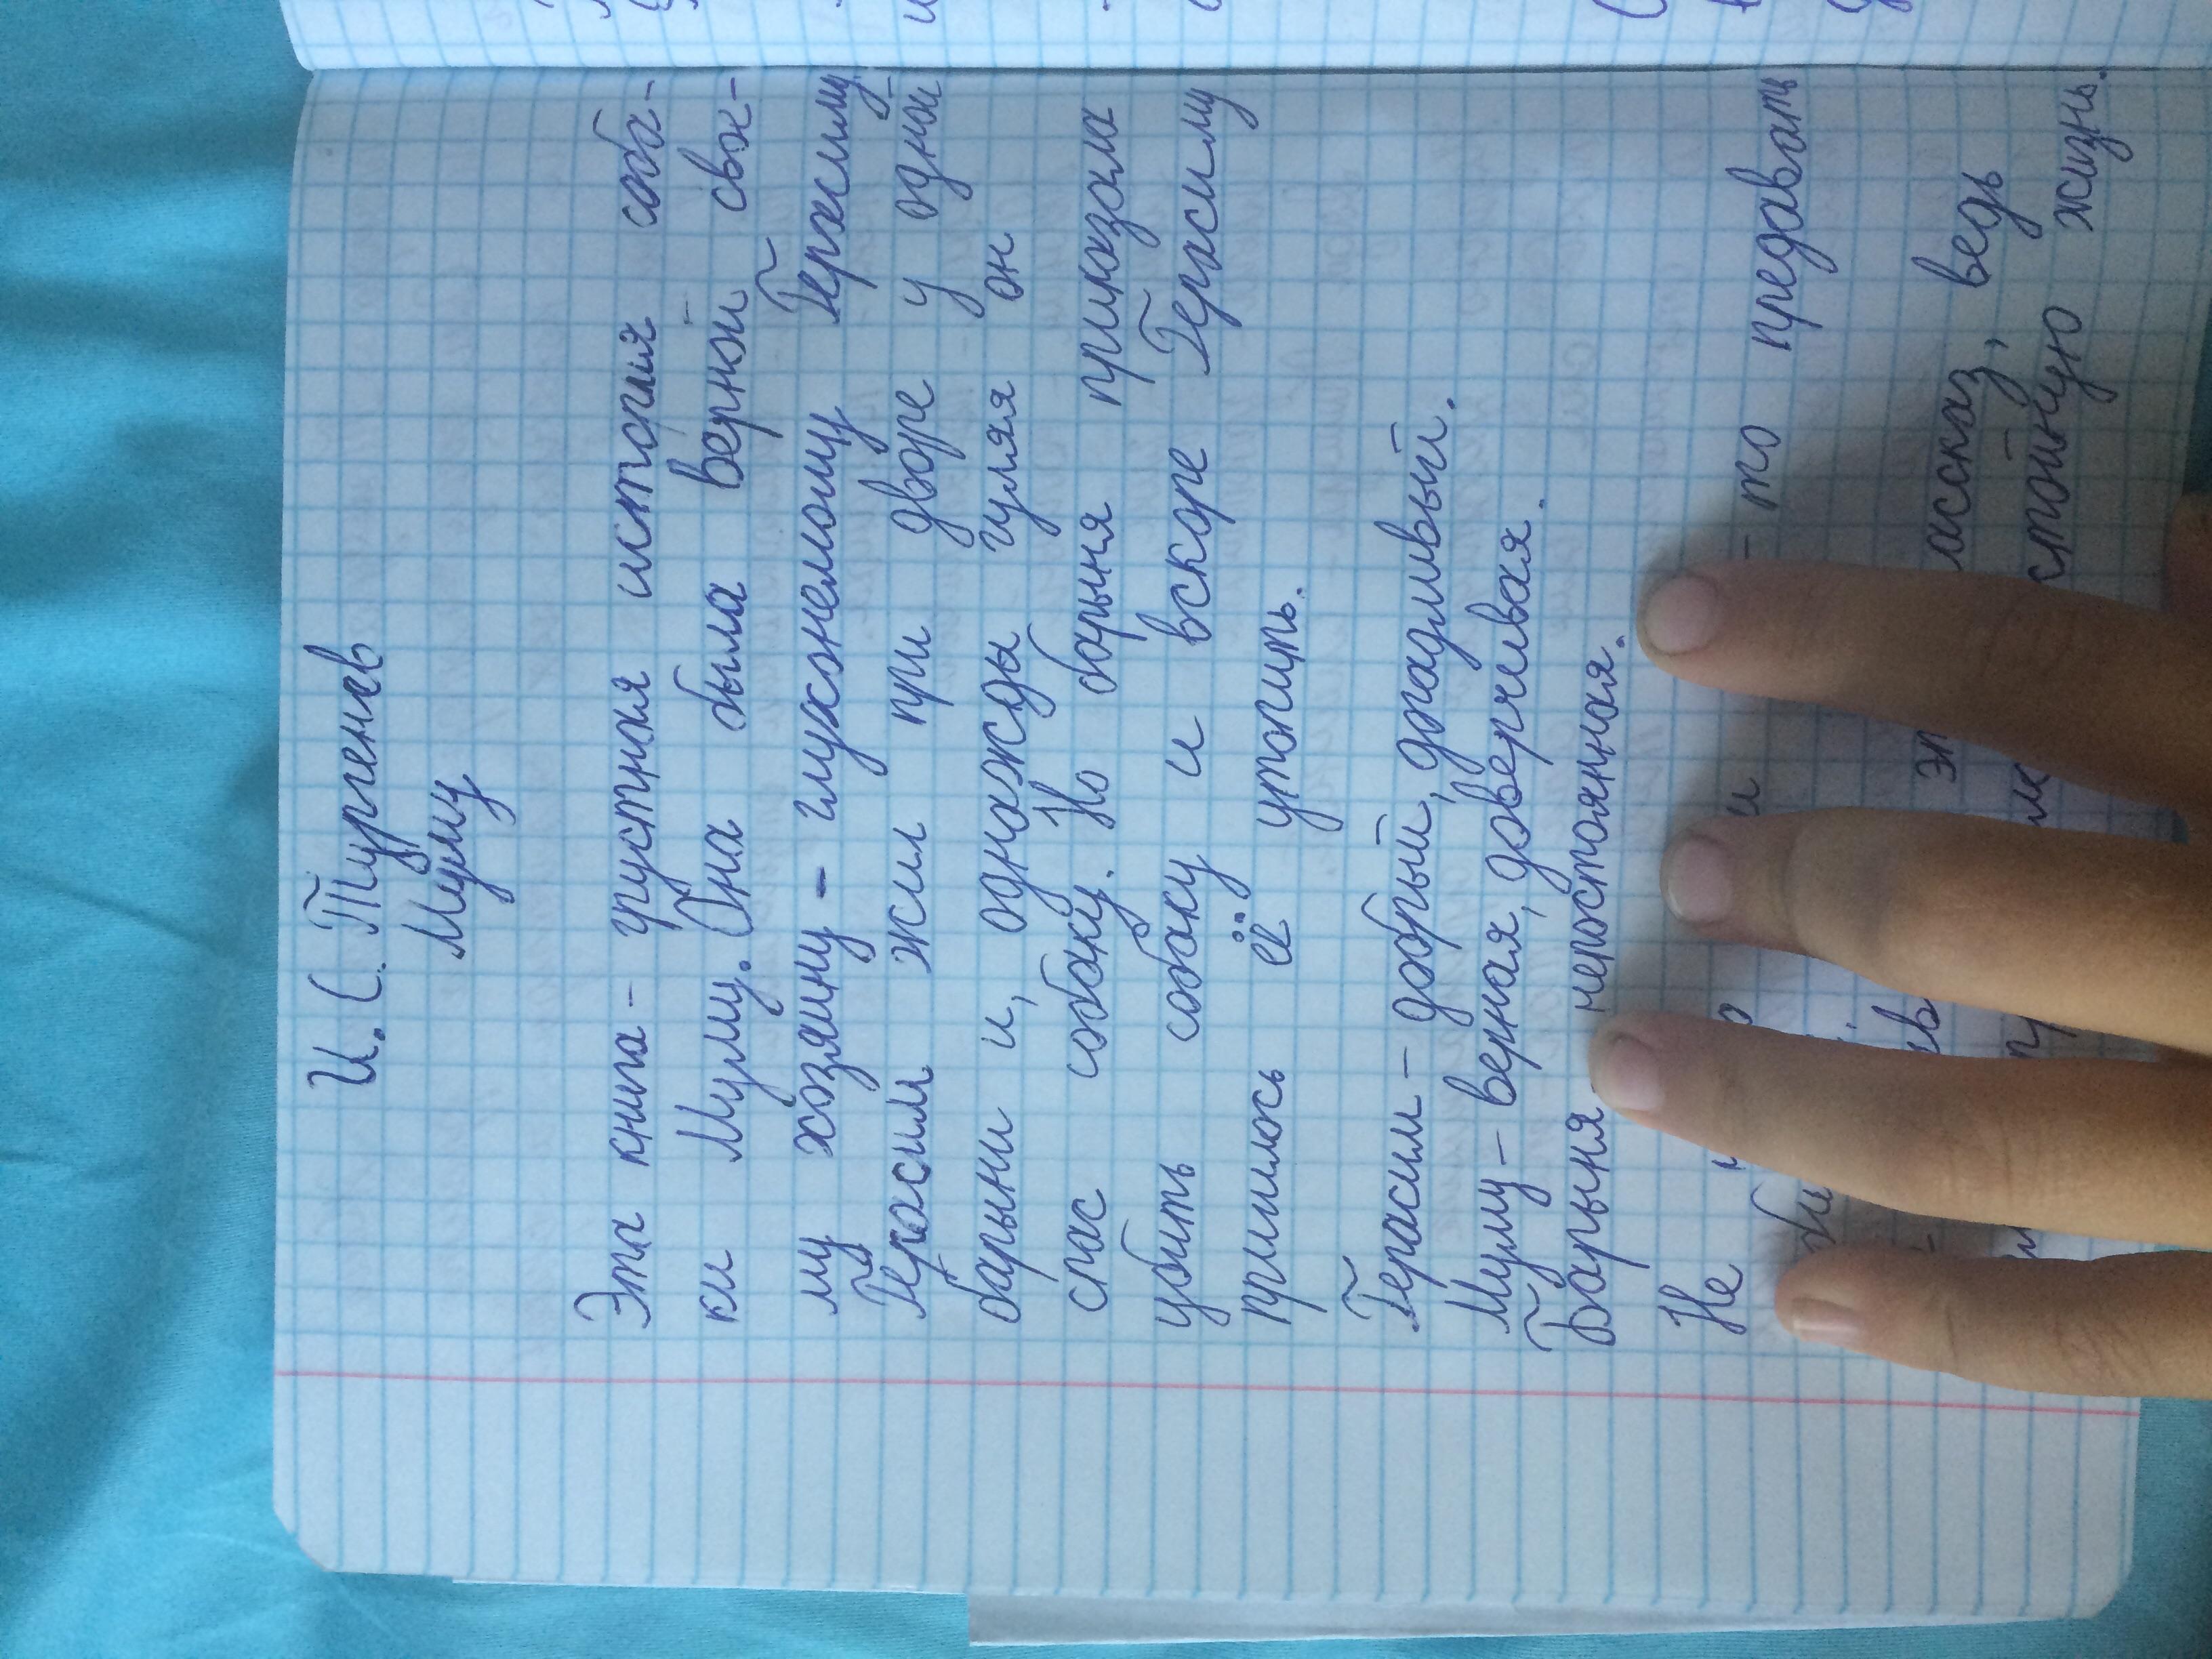 И. С. Тургенев
Муму
Эта книга - грустная история соба-
ки Муму. Она была верной свое-
му хозяину - глухонемому Герасиму.
Герасим жил при дворе у одной
барыни и, однажды гуляя он
спас собаку. Но барыня приказала
убить собаку и вскоре Герасиму
пришлось её утопить.
Герасим - добрый, драчливый.
Муму - верная, доверчивая.
Барыня - непостоянная.
Не - то предавать
ведь
жизнь.